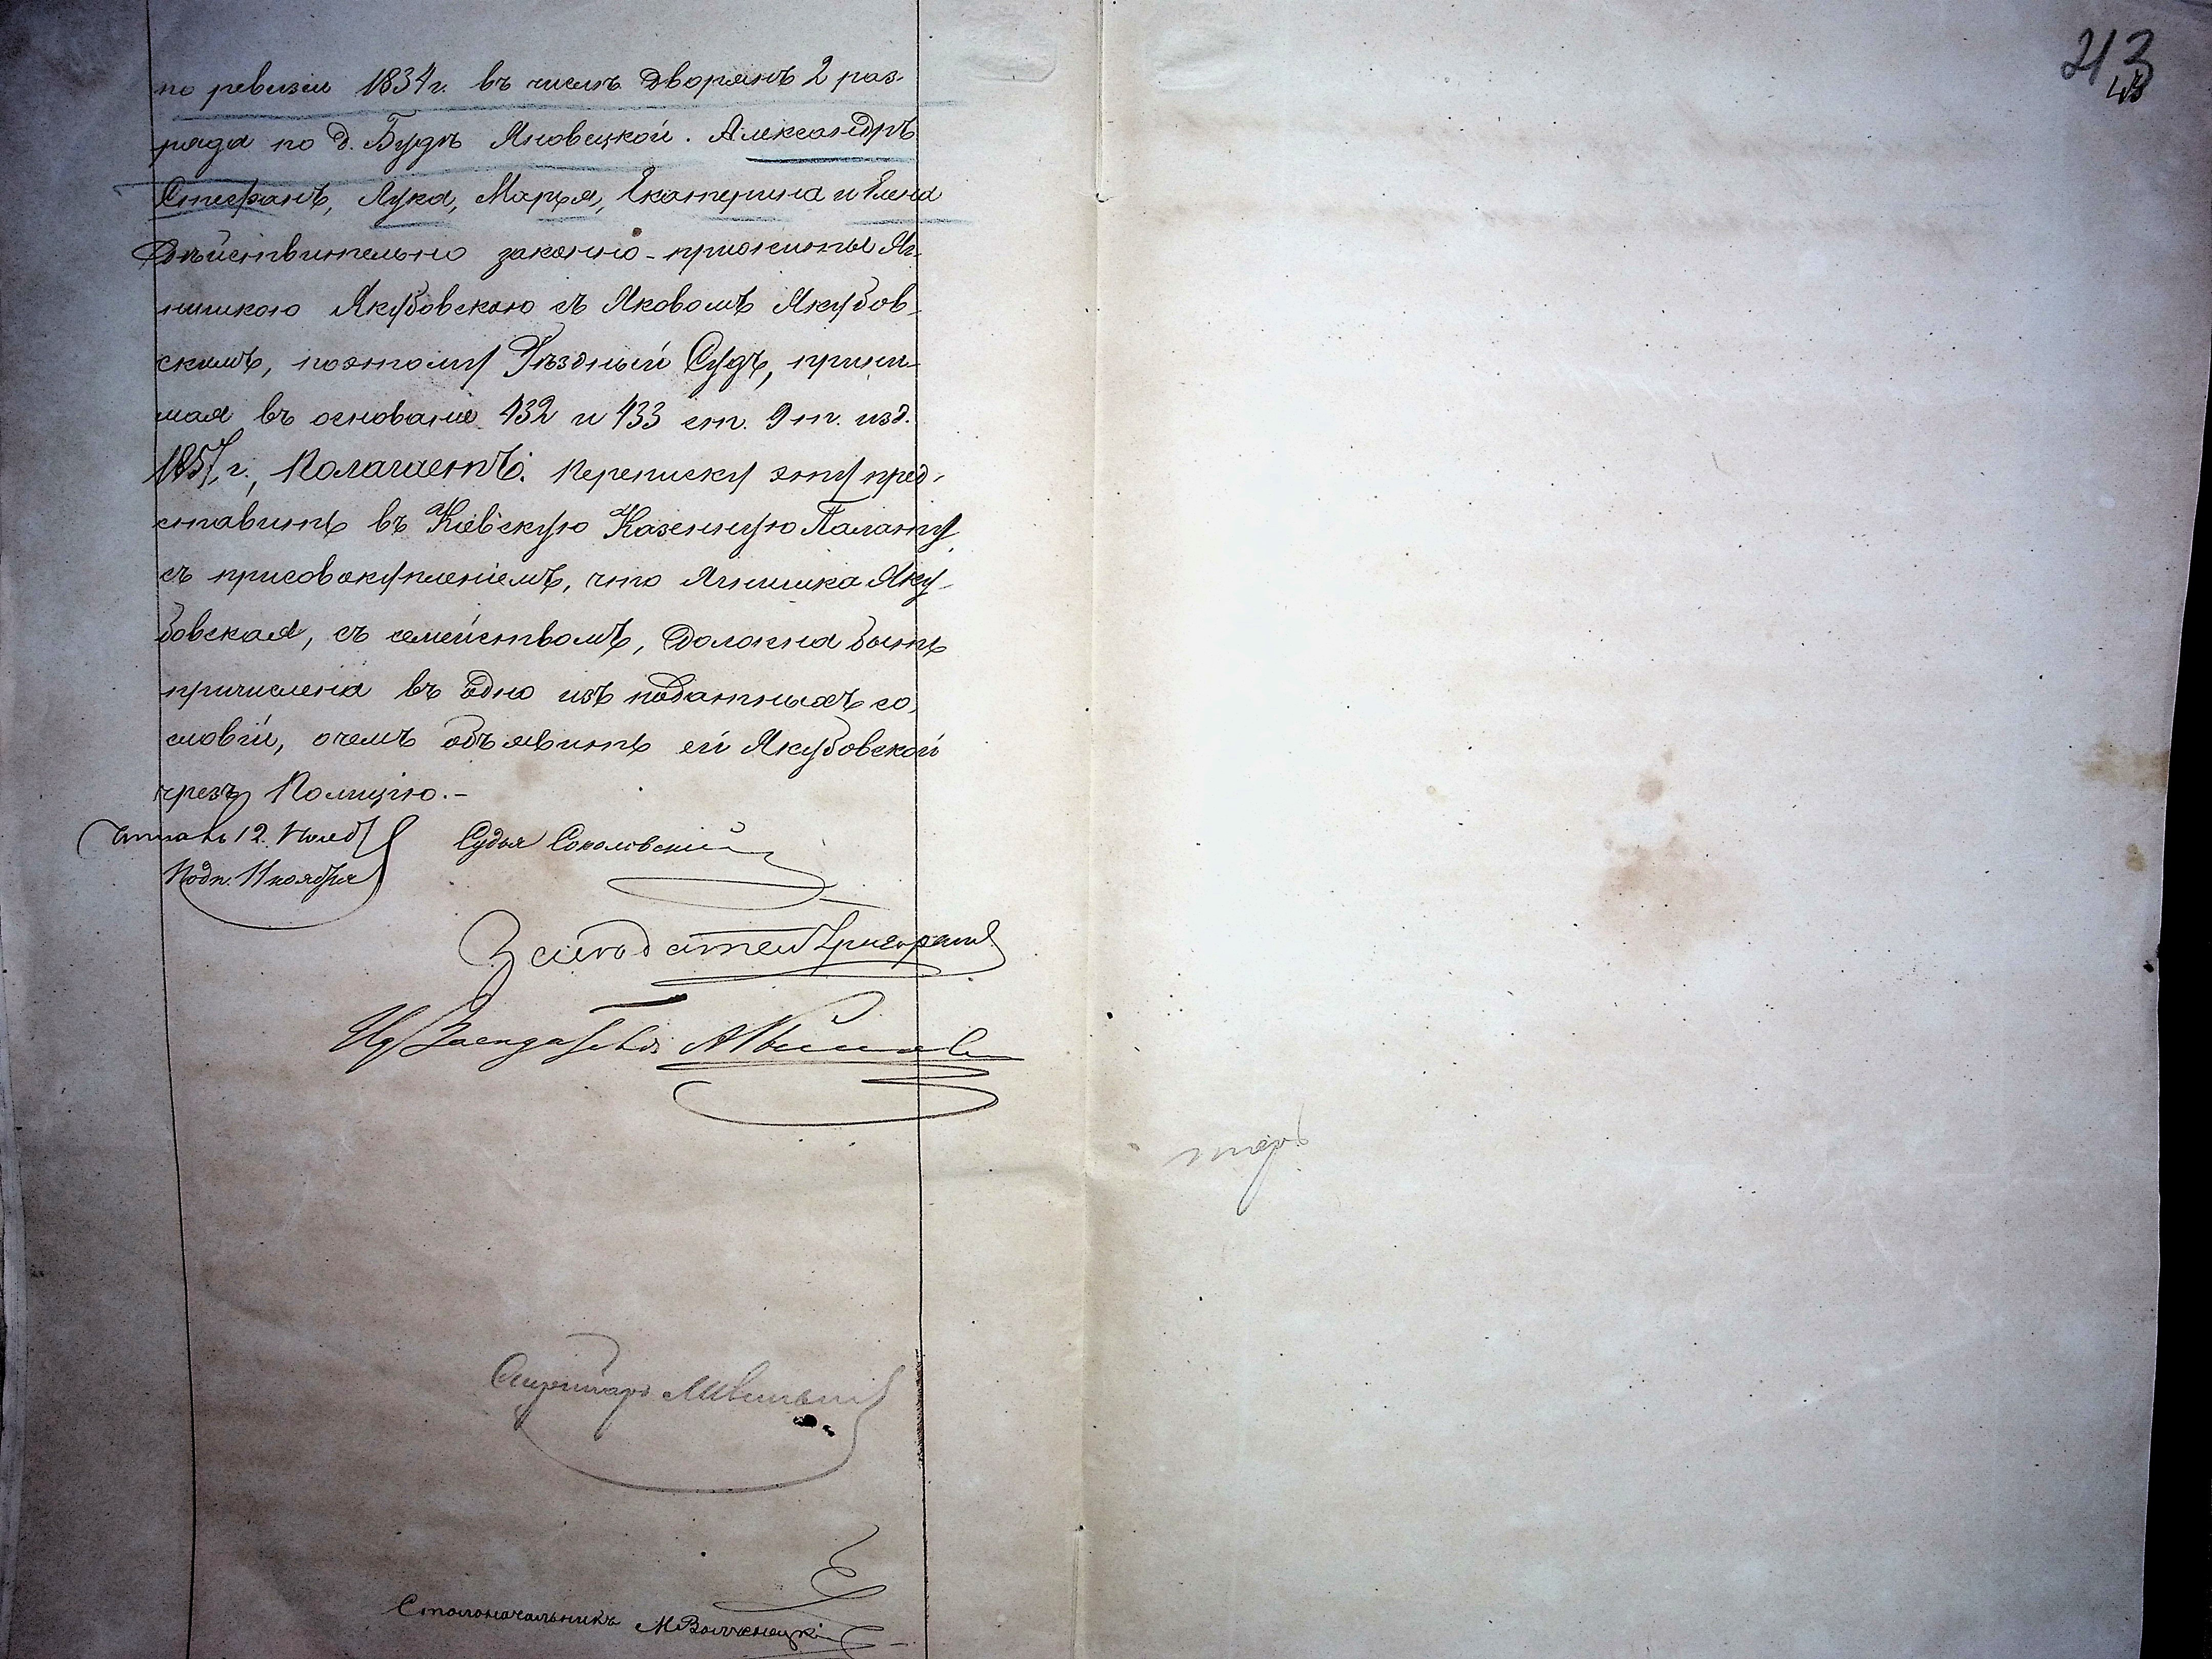 по ревизіи 1834 г. въ числѣ дворянъ 2 раз-
ряда по д. Будѣ Яновецкой. Александръ
Стефанъ, Лука, Марья, Екатерина и Елена
дѣйствительно законно-прижиты Яг-
нишкою Якубовскою съ Яковомъ Якубов-
скимъ, поэтому Уѣздный Судъ, прини-
мая въ основаніе 432 и 433 ст. 9 т. изд.
1857 г., Полагаетъ: Переписку эту пред-
ставить въ Кіевскую Казенную Палату
съ присовокупленіемъ, что Ягнишка Яку-
бовская, съ семействомъ, должна быть
причислена въ одно изъ податныхъ со-
словій, о чемъ объявить ей Якубовской
чрезъ Полицію.-
Читалъ 12. Нояб
Подп. 11 ноября
Судья Соколовскій
Засѣдатель
Секретарь
Столоначальникъ М
213
43